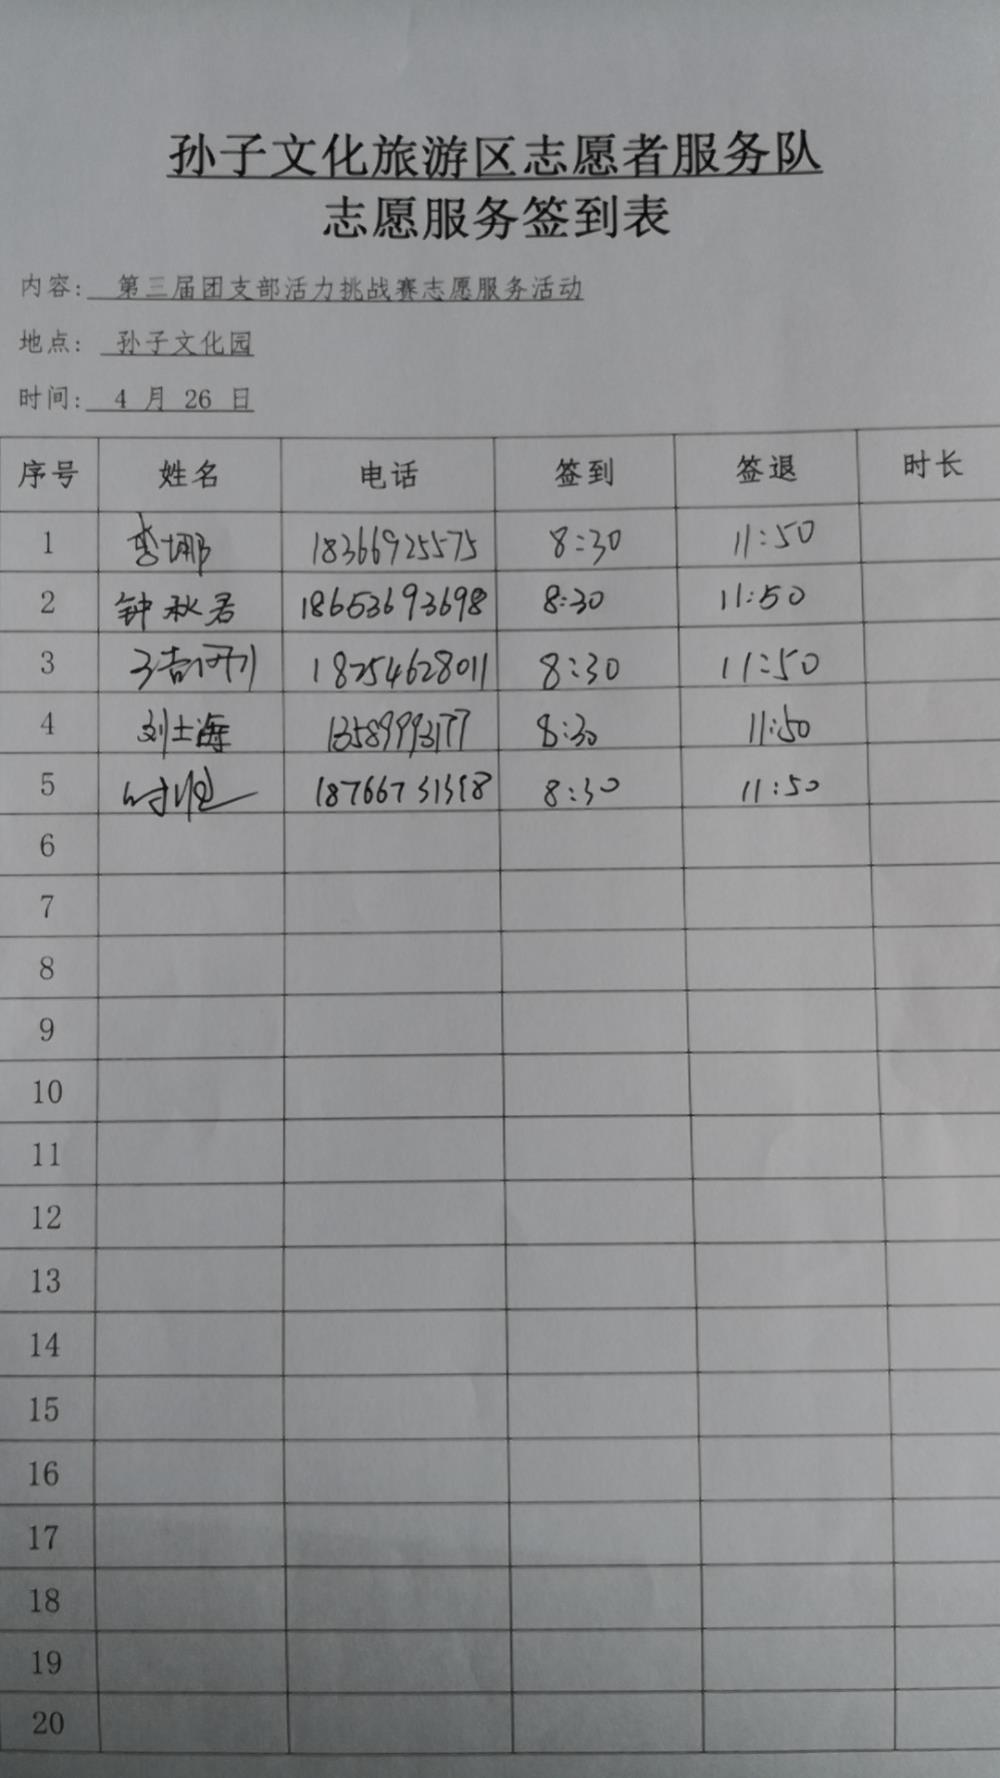 孙子文化旅游区志愿者服务队
志愿服务签到表
内容: 第三届团支部活力挑战赛志愿服务活动
地点: 孙子文化园
时间: 4 月 26 日
序号 姓名 电话 签到 签退 时长
1 李娜 18366925575 8:30 11:50
2 钟秋君 18653693698 8:30 11:50
3 18254628011 8:30 11:50
4 刘士海 13589993177 8:30 11:50
5 8:30 11:50
6
7
8
9
10
11
12
13
14
15
16
17
18
19
20